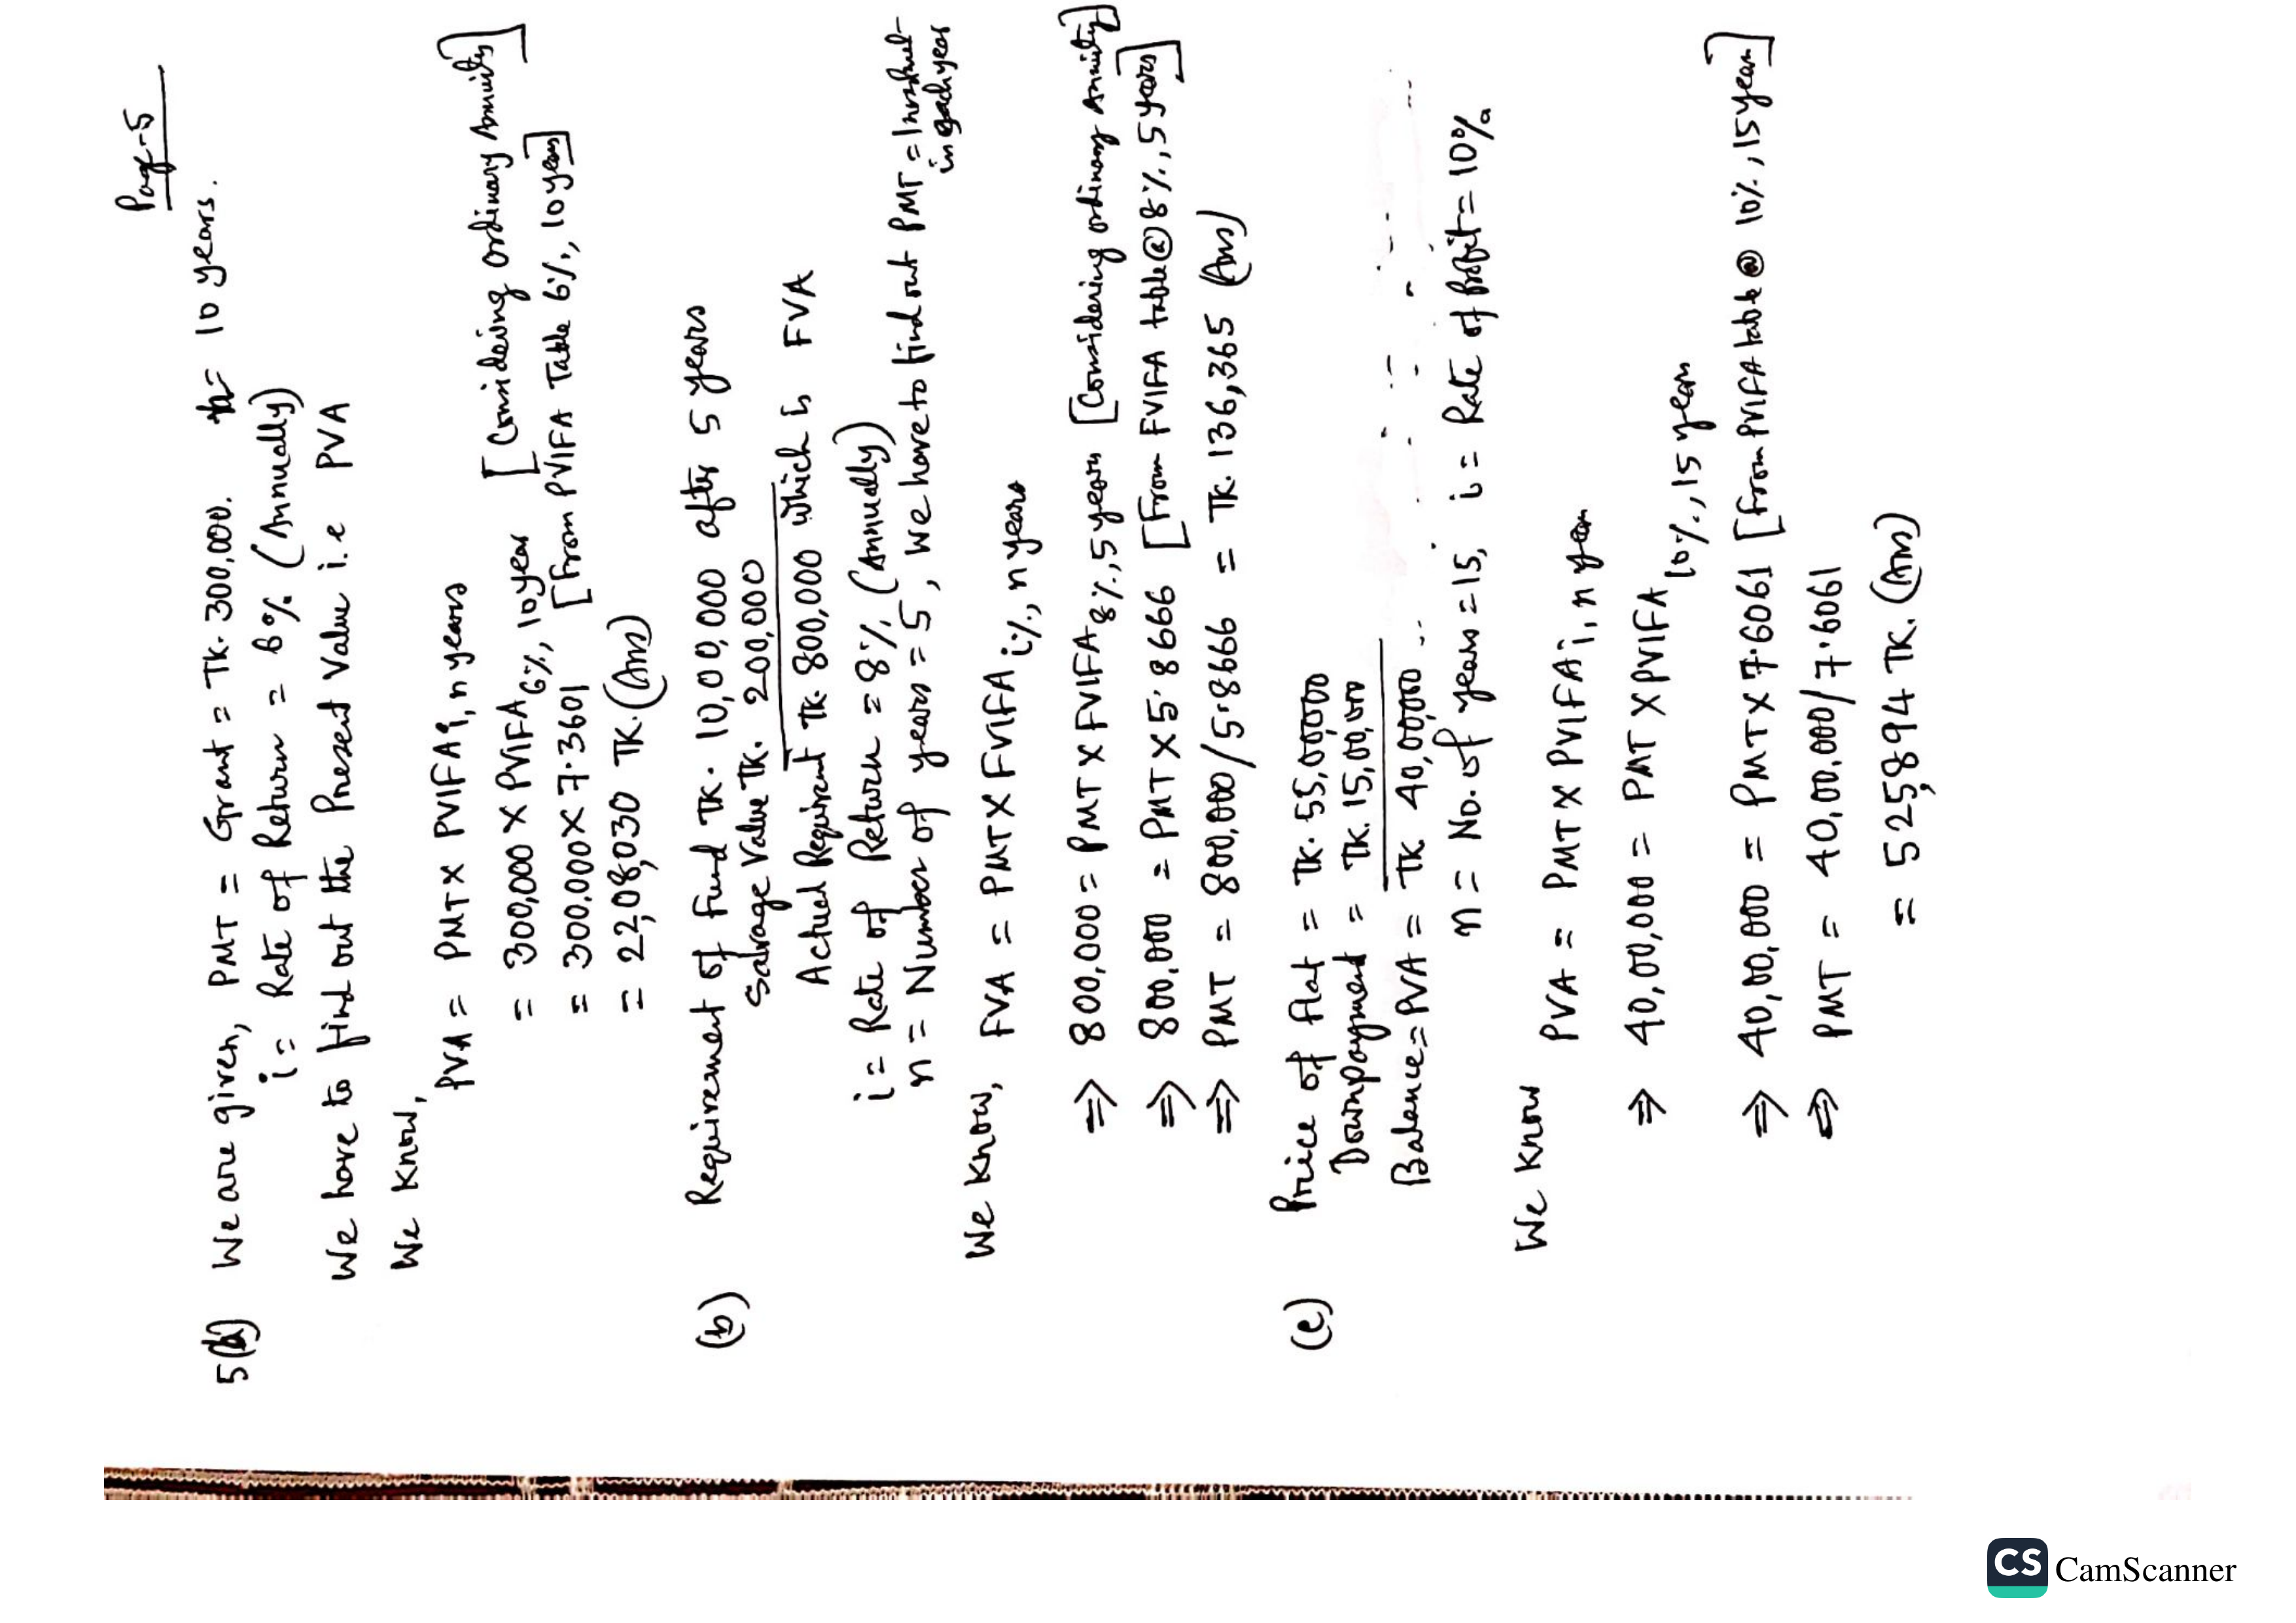 Page-5
5(a) We are given, PMT = Grant = TK. 300,000. n = 10 years.
i = Rate of Return = 6% (Annually)
We have to find out the Present Value i.e PVA
We know,
PVA = PMT X PVIFA i, n years
= 300,000 X PVIFA 6%, 10 year [Considering ordinary Annuity]
= 300,000 X 7.3601 [From PVIFA Table 6%, 10 years]
= 22,08,030 TK. (Ans)
(b) Requirement of Fund TK. 10,00,000 after 5 years
Salvage Value TK. 200,000
Actual Requirent TK. 800,000 which is FVA
i = Rate of Return = 8% (Annually)
n = Number of years = 5, we have to find out PMT = Instalment in each year
We know, FVA = PMT X FVIFA i%, n years
⇒ 800,000 = PMT X FVIFA 8%, 5 years [Considering ordinary Annuity]
⇒ 800,000 = PMT X 5.8666 [From FVIFA table @ 8%, 5 years]
⇒ PMT = 800,000/5.8666 = TK. 136,365 (Ans)
(c) Price of flat = TK. 55,00,000
Downpayment = TK. 15,00,000
Balance = PVA = TK 40,00,000
n = No. of years = 15, i = Rate of Profit = 10%
We know PVA = PMT X PVIFA i, n year
⇒ 40,00,000 = PMT X PVIFA 10%, 15 years
⇒ 40,00,000 = PMT X 7.6061 [From PVIFA table @ 10%, 15 year]
⇒ PMT = 40,00,000/7.6061
= 525,894 TK. (Ans)
CS CamScanner